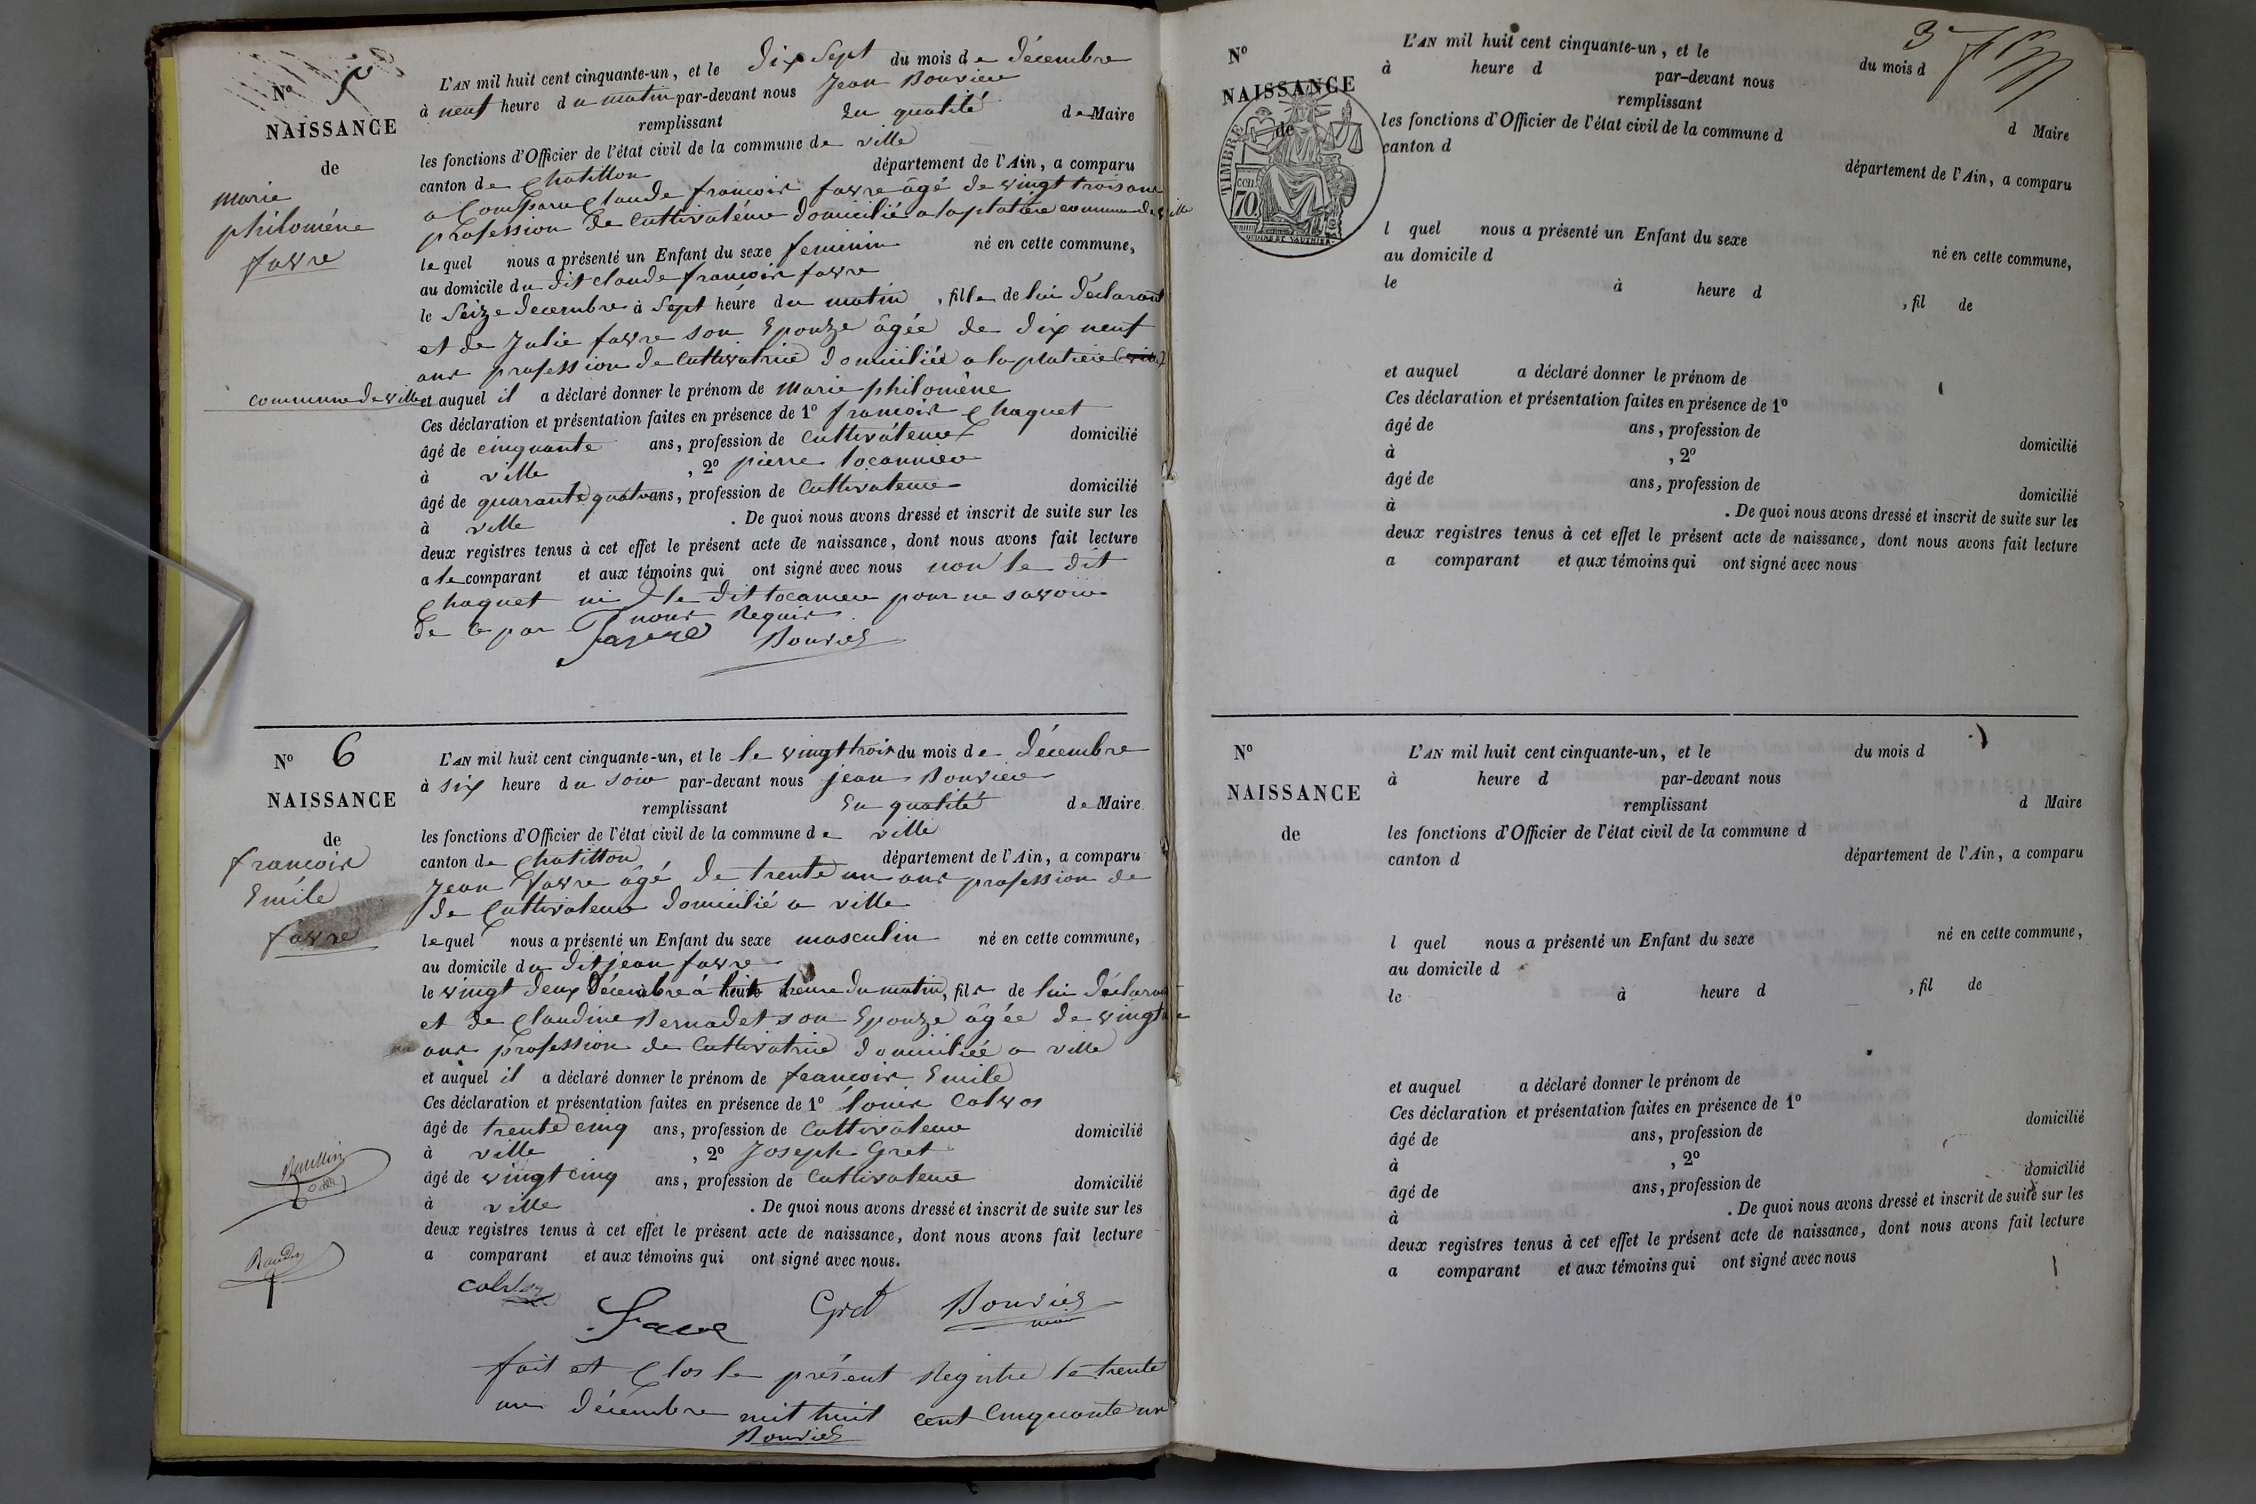 Nº 5
NAISSANCE
de
marie
philoméne
favre
L'AN mil huit cent cinquante-un, et le dix sept du mois de décembre
à neuf heure du matin par-devant nous Jean Bouvier
remplissant En qualité de Maire
les fonctions d'Officier de l'état civil de la commune de ville
canton de Chatillon département de l'Ain, a comparu
a Comparu Claude francois favre âgé de vingt trois ans
profession de Cultivateur domicilié a la platière commune de ville
lequel nous a présenté un Enfant du sexe feminin né en cette commune,
au domicile du dit claude francois favre
le Seize decembre à Sept heure du matin, fille de lui déclarant
et de Julie favre son Epouze âgée de dix neuf
ans profession de Cultivatrice domiciliée a la platiere
commune de ville
et auquel il a déclaré donner le prénom de marie philomène
Ces déclaration et présentation faites en présence de 1º francois Chaquet
âgé de cinquante ans, profession de Cultivateur domicilié
à ville, 2º pierre
âgé de quarante quatre ans, profession de Cultivateur domicilié
à ville. De quoi nous avons dressé et inscrit de suite sur les
deux registres tenus à cet effet le présent acte de naissance, dont nous avons fait lecture
a le comparant et aux témoins qui ont signé avec nous non le dit
Chaquet ni le dit pour ne savoir
de ce par nous Requis
Favre Bouvier
Nº 6
NAISSANCE
de
francois
Emile
favre
L'AN mil huit cent cinquante-un, et le le vingt trois du mois de décembre
à six heure du soir par-devant nous jean Bouvier
remplissant En qualité de Maire
les fonctions d'Officier de l'état civil de la commune de ville
canton de Chatillon département de l'Ain, a comparu
Jean favre âgé de trente un ans profession de
de Cultivateur domicilié a ville
lequel nous a présenté un Enfant du sexe masculin né en cette commune,
au domicile du dit jean favre
le vingt deux Décembre à huit heure du matin, fils de lui déclarant
et de Claudine Bernadet son Epouze âgée de vingt
ans profession de Cultivatrice domiciliée a ville
et auquel il a déclaré donner le prénom de francois Emile
Ces déclaration et présentation faites en présence de 1º louis Calvos
âgé de trente cinq ans, profession de Cultivateur domicilié
à ville, 2º Joseph Gret
âgé de vingt cinq ans, profession de Cultivateur domicilié
à ville. De quoi nous avons dressé et inscrit de suite sur les
deux registres tenus à cet effet le présent acte de naissance, dont nous avons fait lecture
a comparant et aux témoins qui ont signé avec nous.
Favre Gret Bouvier
fait et Clos le présent Registre le trente
un décembre mil huit cent Cinquante un
Bouvier
3e
Nº
NAISSANCE
de
TIMBRE
70
L'AN mil huit cent cinquante-un, et le du mois d
à heure d par-devant nous
remplissant d Maire
les fonctions d'Officier de l'état civil de la commune d
canton d département de l'Ain, a comparu
l quel nous a présenté un Enfant du sexe né en cette commune,
au domicile d
le à heure d, fil de
et auquel a déclaré donner le prénom de
Ces déclaration et présentation faites en présence de 1º
âgé de ans, profession de domicilié
à, 2º
âgé de ans, profession de domicilié
à. De quoi nous avons dressé et inscrit de suite sur les
deux registres tenus à cet effet le présent acte de naissance, dont nous avons fait lecture
a comparant et aux témoins qui ont signé avec nous
Nº
NAISSANCE
de
L'AN mil huit cent cinquante-un, et le du mois d
à heure d par-devant nous
remplissant d Maire
les fonctions d'Officier de l'état civil de la commune d
canton d département de l'Ain, a comparu
l quel nous a présenté un Enfant du sexe né en cette commune,
au domicile d
le à heure d, fil de
et auquel a déclaré donner le prénom de
Ces déclaration et présentation faites en présence de 1º
âgé de ans, profession de domicilié
à, 2º
âgé de ans, profession de domicilié
à. De quoi nous avons dressé et inscrit de suite sur les
deux registres tenus à cet effet le présent acte de naissance, dont nous avons fait lecture
a comparant et aux témoins qui ont signé avec nous